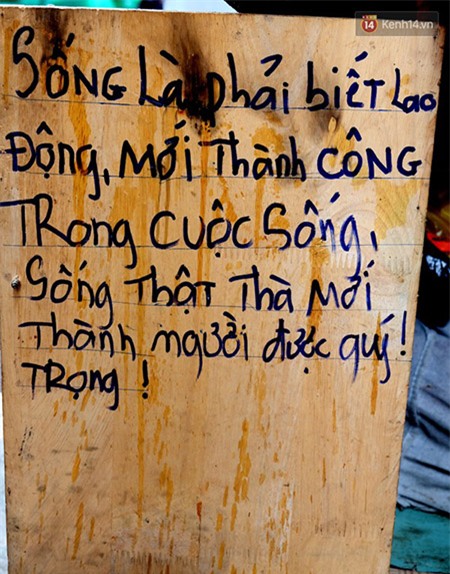 14 Kenh14.vn
SỐNG Là phải biết Lao
Động, Mới Thành CÔNG
TRong CUỘC SỐNG,
Sống Thật Thà Mới
Thành người được quý!
TRỌNG!